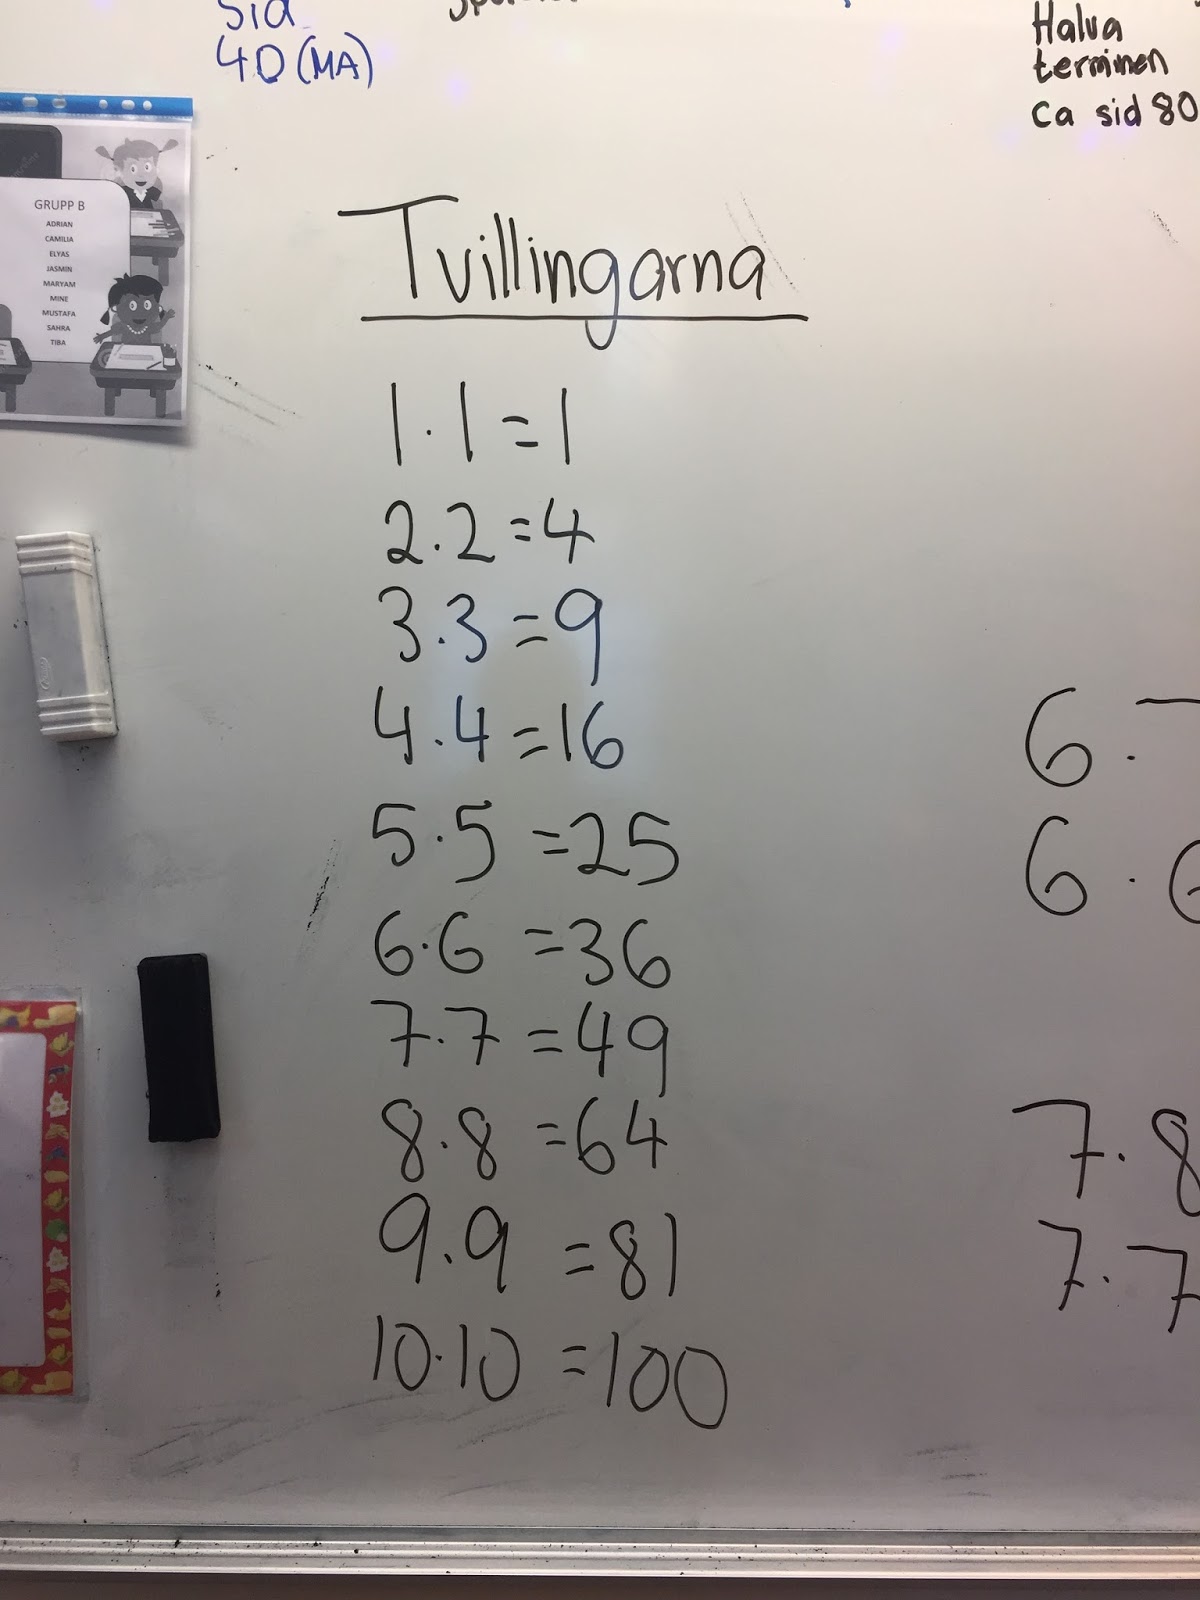 Sid
40 (MA)
Halva
terminen
ca sid 80
GRUPP B
ADRIAN
CAMILIA
ELYAS
JASMIN
MARYAM
MINE
MUSTAFA
SAHRA
TIBA
Tvillingarna
1·1=1
2·2=4
3·3=9
4·4=16
5·5=25
6·6=36
7·7=49
8·8=64
9·9=81
10·10=100
6·
6·
7·8
7·7